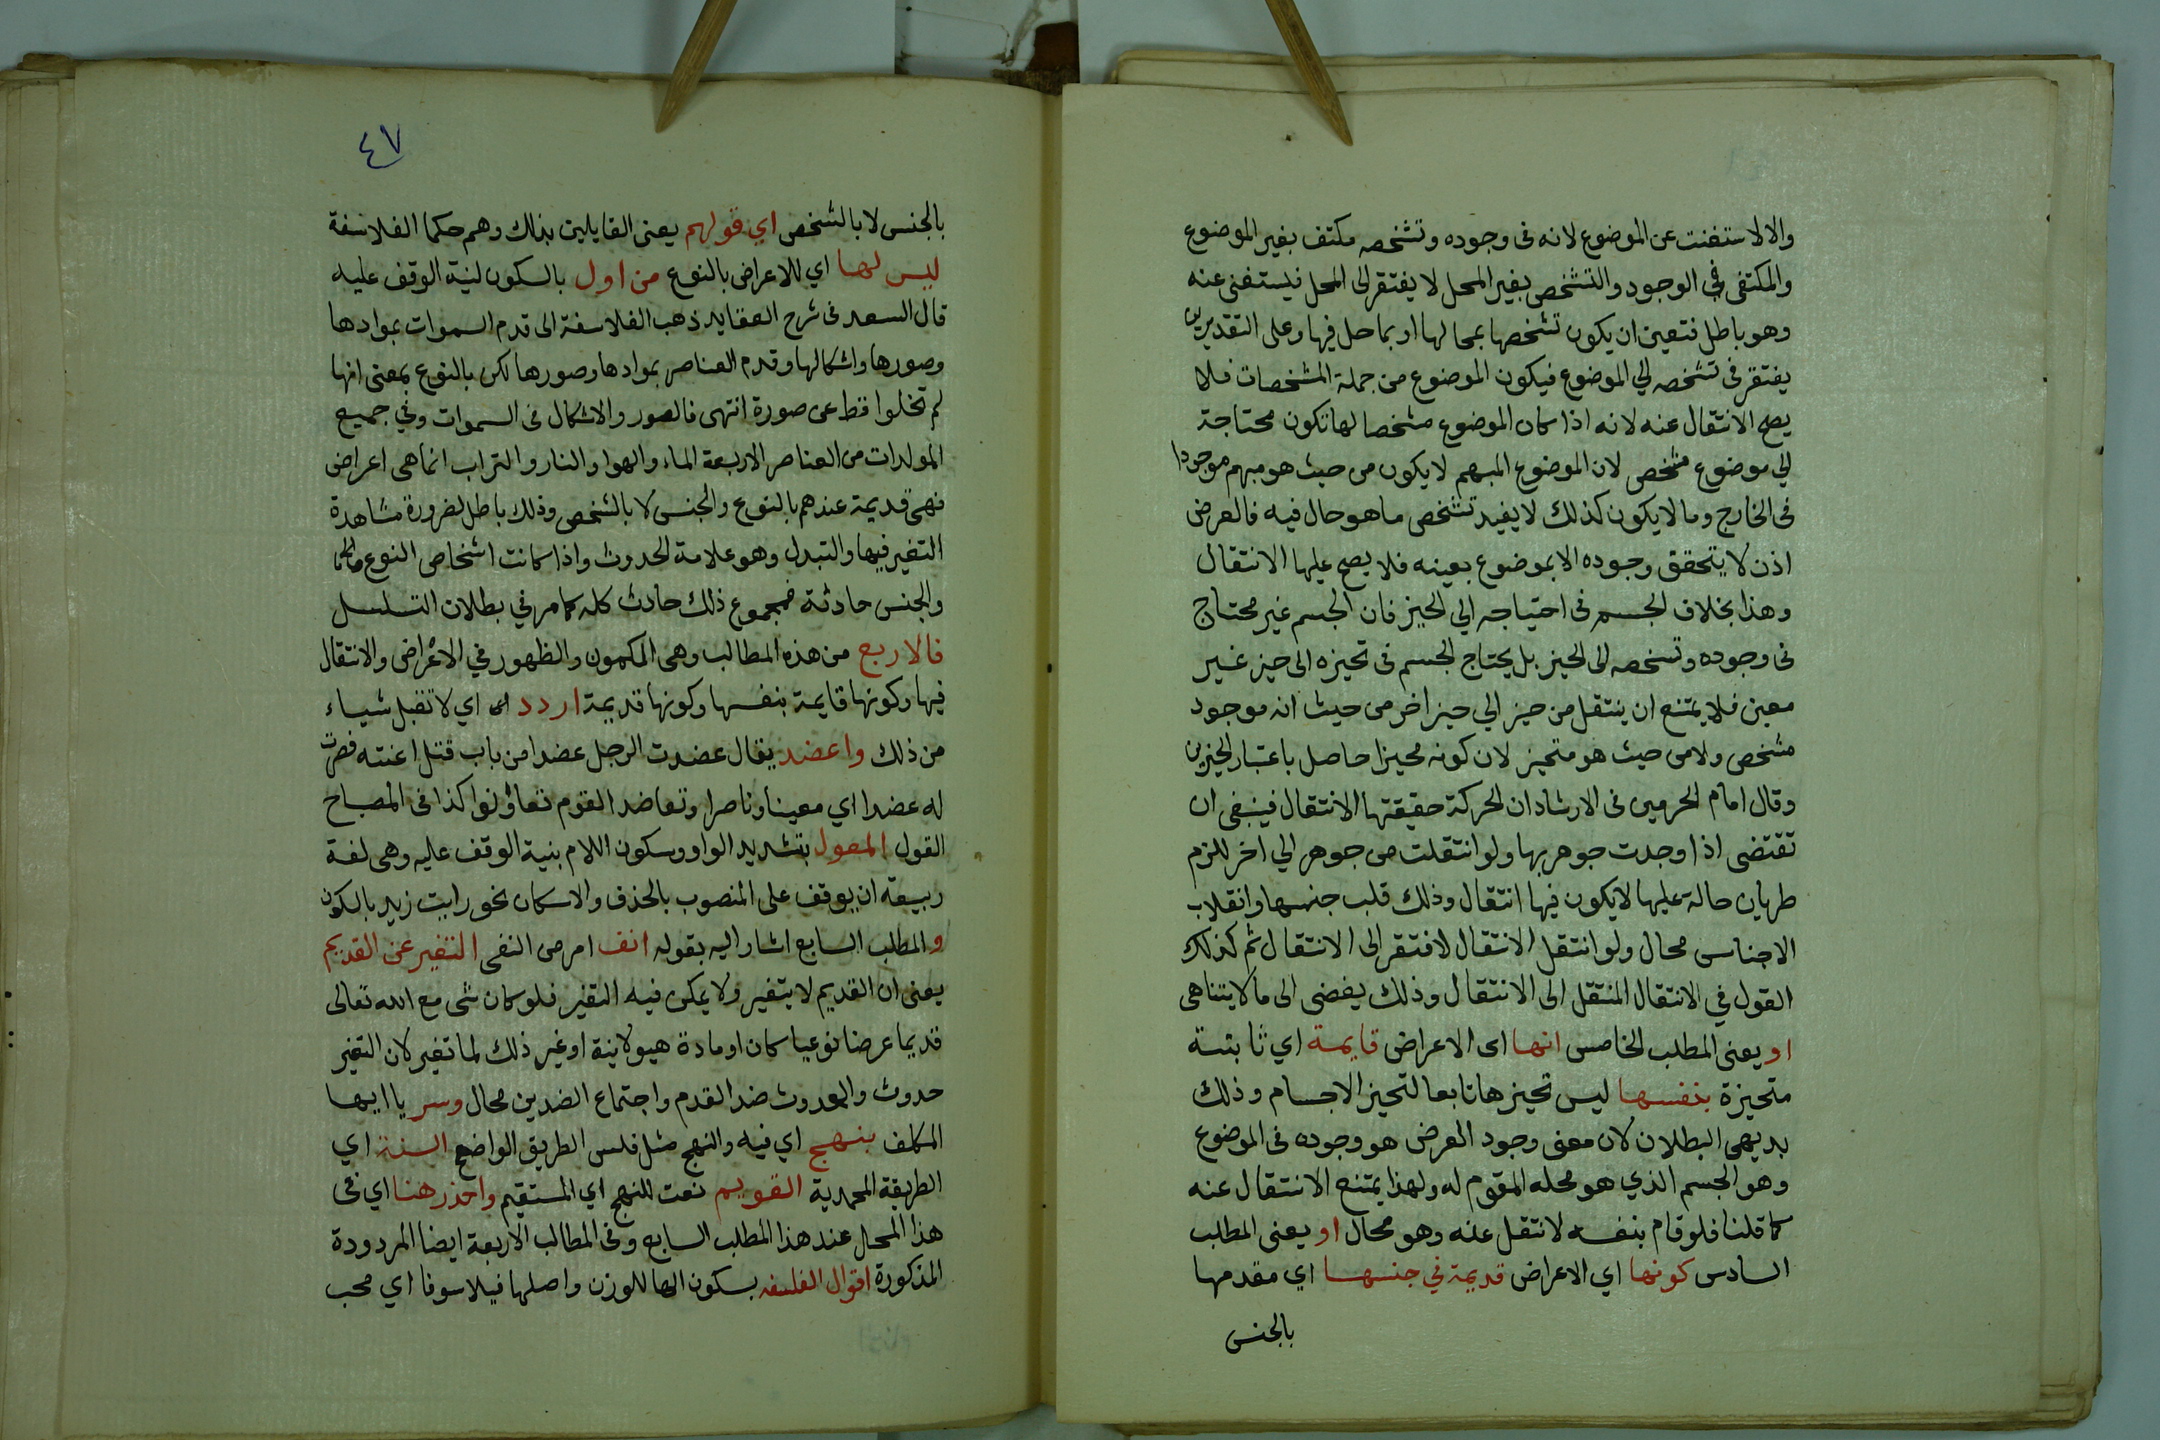 والالاستغنت عن الموضوع لانه فى وجوده وتشخصه مكتف بغير الموضوع
والمكتفى في الوجود والتشخص بغير المحل لا يفتقر الى المحل فيستغنى عنه
وهو باطل فتعين ان يكون تشخصها بمحالها او بما حل فيها وعلى التقديرين
يفتقر فى تشخصه الي الموضوع فيكون الموضوع من جملة المشخصات فلا
يصح الانتقال عنه لانه اذا كان الموضوع مشخصا لها تكون محتاجة
الي موضوع مشخص لان الموضوع المبهم لا يكون من حيث هو مبهم موجودا
فى الخارج وما لا يكون كذلك لا يفيد تشخص ما هو حال فيه فالعرض
اذن لا يتحقق وجوده الا بموضوع بعينه فلا يصح عليها الانتقال
وهذا بخلاف الجسم فى احتياجه الي الحيز فان الجسم غير محتاج
فى وجوده وتشخصه الى الحيز بل يحتاج الجسم فى تحيزه الى حيز غير
معين فلا يمتنع ان ينتقل من حيز الي حيز اخر من حيث انه موجود
مشخص ولا من حيث هو متحيز لان كونه محيزا حاصل باعتبار الحيزين
وقال امام الحرمين فى الارشاد ان الحركة حقيقتها الانتقال فينبغى ان
تقتضى اذا وجدت جوهر بها ولو انتقلت من جوهر الي اخر للزم
طريان حالة عليها لا يكون فيها انتقال وذلك قلب جنسها وانقلاب
الاجناس محال ولو انتقل الانتقال لافتقر الى الانتقال ثم كذلك
القول في الانتقال المنتقل الى الانتقال وذلك يفضى الى ما لا يتناهى
او يعنى المطلب الخامس انها اى الاعراض قايمة اي ثابتة
متحيزة بنفسها ليس تحيزها تابعا لتحيز الاجسام وذلك
بديهى البطلان لان معنى وجود العرض هو وجوده فى الموضوع
وهو الجسم الذي هو محله المقوم له ولهذا يمتنع الانتقال عنه
كما قلنا فلو قام بنفسه لانتقل عنه وهو محال او يعنى المطلب
السادس كونها اي الاعراض قديمة في جنسها اي مقدمها
بالجنس
٤٧
بالجنس لا بالشخص اي قولهم يعنى القايلين بذلك وهم حكما الفلاسفة
ليس لها اي للاعراض بالنوع من اول بالسكون لنية الوقف عليه
قال السعد فى شرح العقايد ذهب الفلاسفة الى قدم السموات بموادها
وصورها واشكالها وقدم العناصر بموادها وصورها لكن بالنوع بمعنى انها
لم تخلوا قط عن صورة انتهى فالصور والاشكال فى السموات وفي جميع
المولدات من العناصر الاربعة الماء والهوا والنار والتراب انما هى اعراض
فهى قديمة عندهم بالنوع والجنس لا بالشخص وذلك باطل لضرورة مشاهدة
التغير فيها والتبدل وهو علامة الحدوث واذا كانت اشخاص النوع
والجنس حادثة فمجموع ذلك حادث كله كما مر في بطلان التسلسل
فالاربع من هذه المطالب وهى الكمون والظهور في الاعراض والانتقال
فيها وكونها قايمة بنفسها وكونها قديمة اردد اي لا تقبل شياء
من ذلك واعضد يقال عضدت الرجل عضدا من باب قتل اعنته فصرت
له عضدا اي معينا وناصرا وتعاضد القوم تعاونوا كذا فى المصباح
القول المعول بتشديد الواو وسكون اللام بنية الوقف عليه وهى لغة
ربيعة ان يوقف على المنصوب بالحذف والاسكان نحو رايت زيد بالسكون
و المطلب السابع اشار اليه بقوله انف امر من النفى التغير عن القديم
يعنى ان القديم لا يتغير ولا يمكن فيه التغير فلو كان شى مع الله تعالى
قديما عرضا نوعيا كان او مادة هيولانية او غير ذلك لما تغير لان التغير
حدوث والحدوث ضد القدم واجتماع الضدين محال وسر يا ايها
المكلف بنهج اي فيه والنهج مثل فلس الطريق الواضح السنة اي
الطريقة المحمدية القويم نعت للنهج اي المستقيم واحذر هنا اي فى
هذا المحل عند هذا المطلب السابع وفى المطالب الاربعة ايضا المردودة
المذكورة اقوال الفلسفه بسكون الها للوزن واصلها فيلاسوفا اي محب